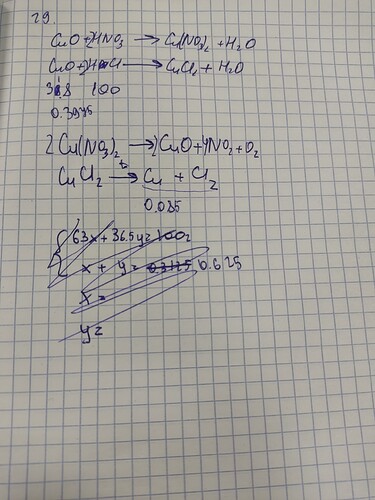 29.
CuO + 2HNO3 → Cu(NO3)2 + H2O
CuO + 2HCl → CuCl2 + H2O
100
0.3975
2Cu(NO3)2 → 2CuO + 4NO2 + O2
CuCl2 → Cu + Cl2
0.085
63x + 36.5y = 100
x + y = 0.3125 0.625
x =
y =